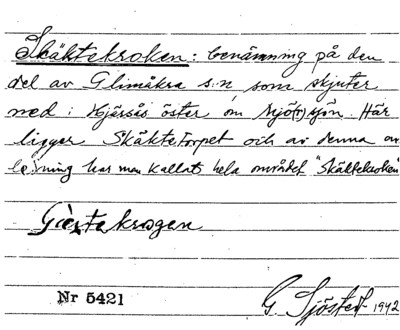 Skäktekroken: benämning på den
del av Glimåkra s:n, som skjuter
ned i Hjärsås öster om sjön. Här
ligger Skäktetorpet och av denna an
ledning har man kallat hela området "Skäktekroken"
krogen
Nr 5421
G. Sjöstedt 1942